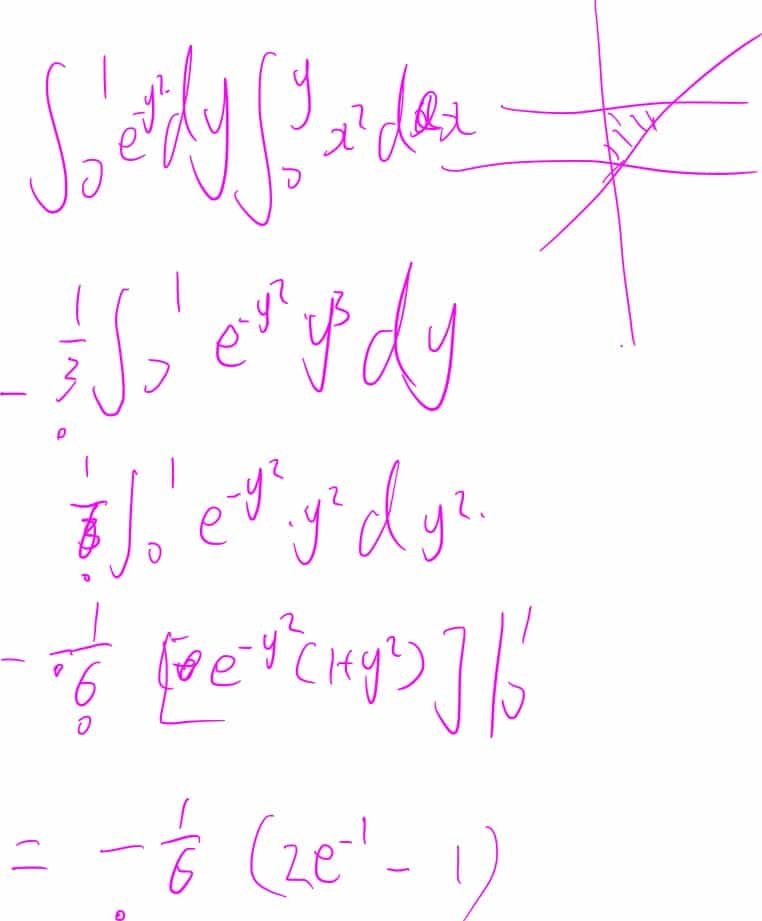 ∫₀¹ e^{-y²} dy ∫₀^y x² dx
- 1/3 ∫₀¹ e^{-y²} y³ dy
1/6 ∫₀¹ e^{-y²} · y² d y².
- 1/6 [e^{-y²}(1+y²)] |₀¹
= - 1/6 (2e^{-1} - 1)